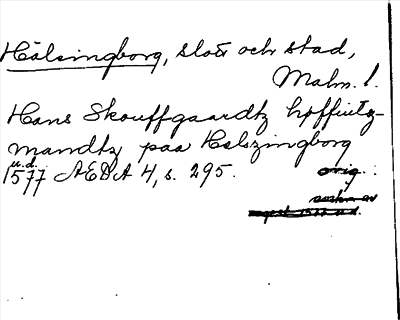 Hälsingborg, slott och stad,
Malm. l.
Hans Skouffgaardtz höffuitz-
mandtz paa Helszingborg
u.d.
1577 AEDA 4, s. 295. orig.